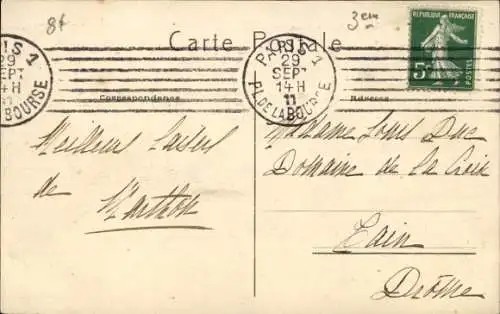 8f
3em
Carte Postale
RÉPUBLIQUE FRANÇAISE
5c
POSTES
IS 1
29
SEPT
14H
11
BOURSE
PARIS 1
29
SEPT
14H
11
PL. DE LA BOURSE
Correspondance
Adresse
Meilleurs baisers
de
Marthon
Madame Louis Duc
Domaine de la Croix
Tain
Drôme